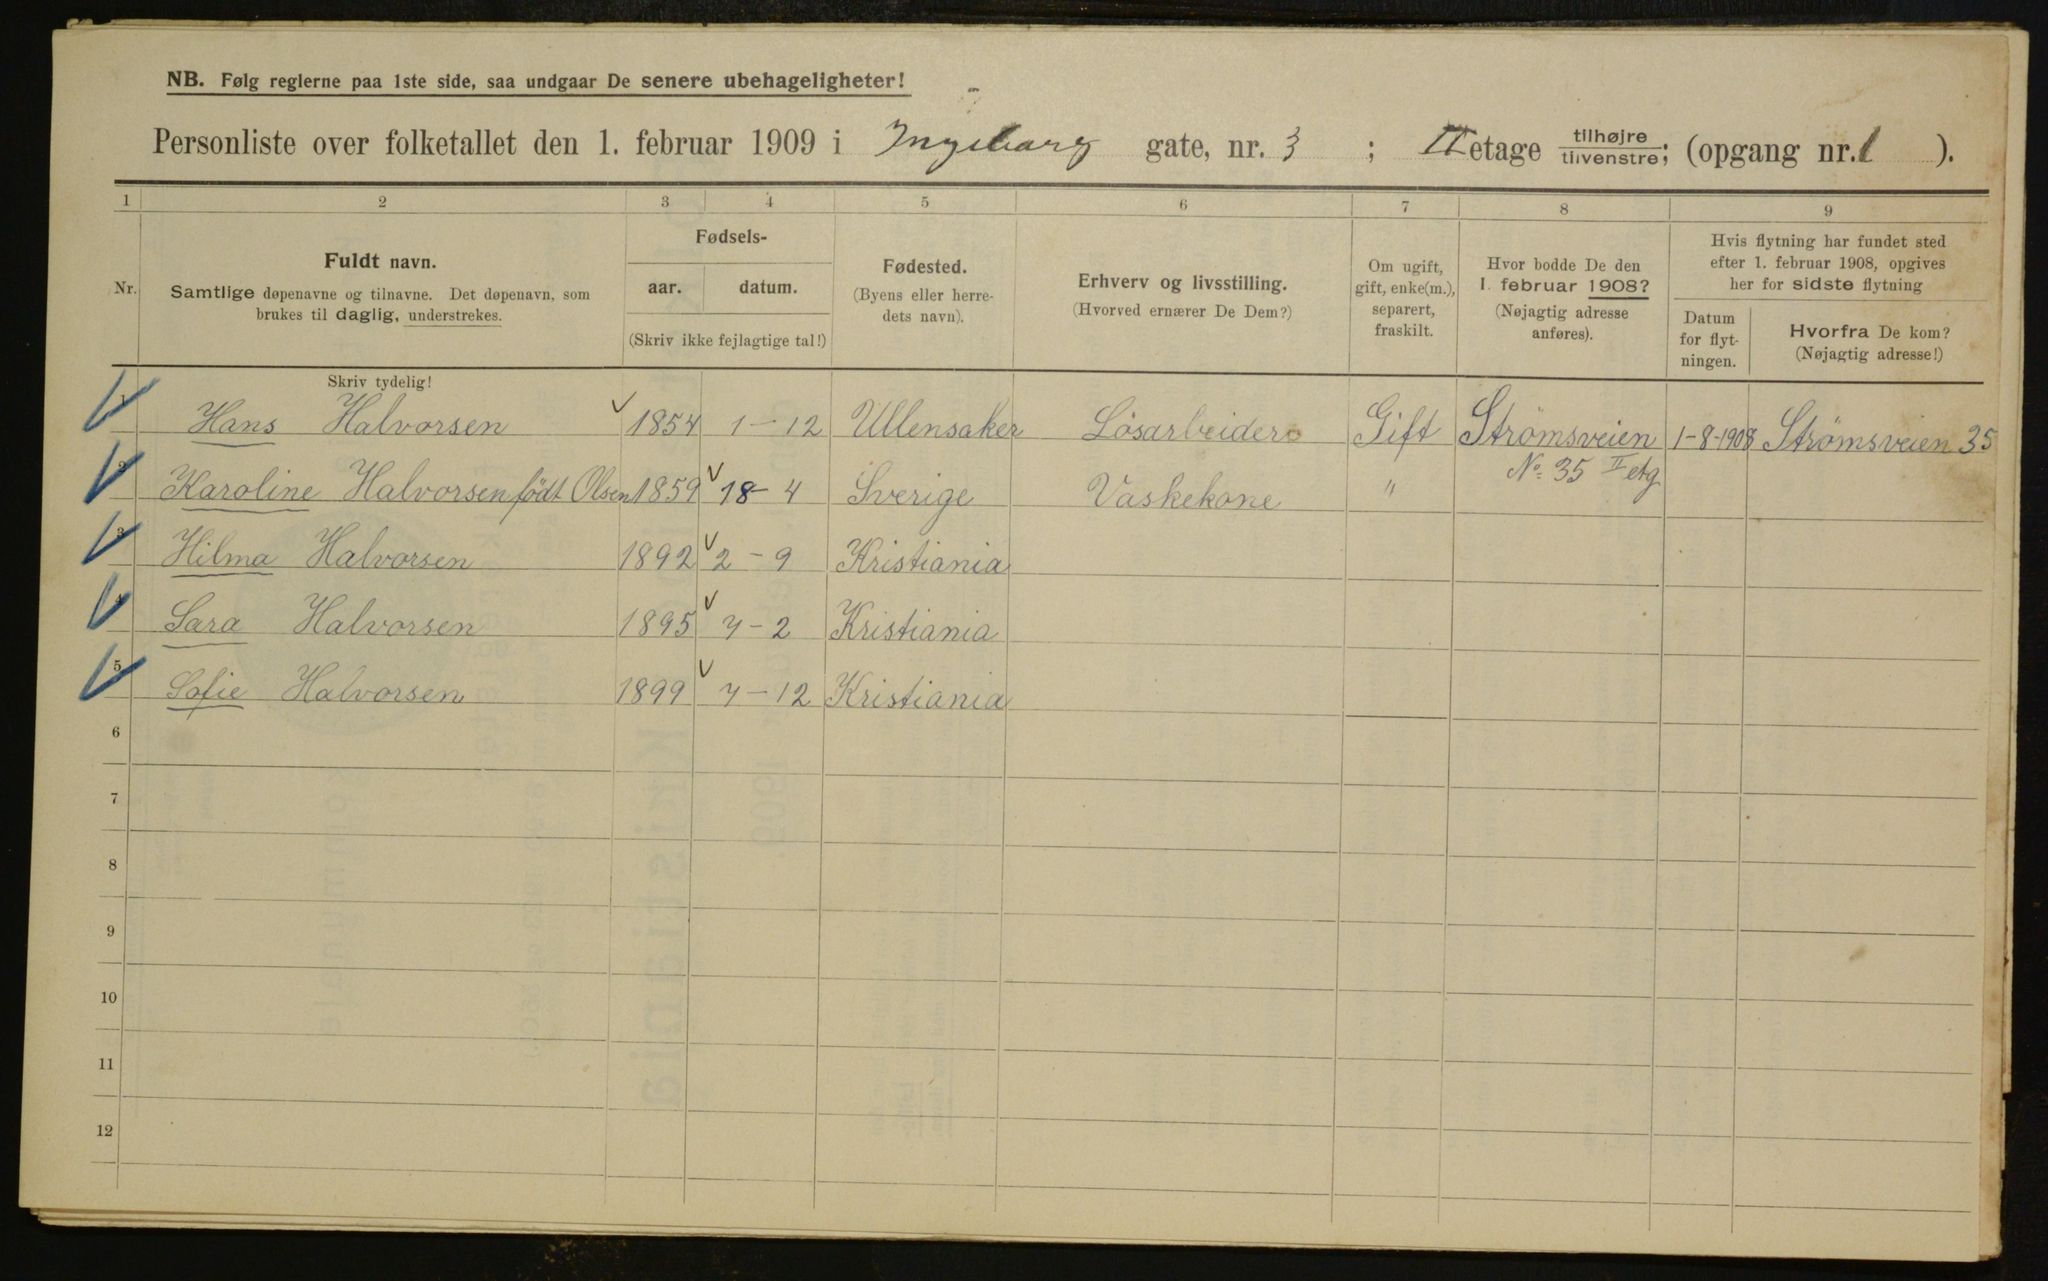 NB. Følg reglerne paa 1ste side, saa undgaar De senere ubehageligheter!
Personliste over folketallet den 1. februar 1909 i Ingeborg gate, nr. 3 ; II etage tilhøjre / tilvenstre; (opgang nr. 1 ).
1 2 3 4 5 6 7 8 9
Nr.
Fuldt navn.
Samtlige døpenavne og tilnavne. Det døpenavn, som
brukes til daglig, understrekes.
Skriv tydelig!
Fødsels-
aar. datum.
(Skriv ikke fejlagtige tal!)
Fødested.
(Byens eller herre-
dets navn).
Erhverv og livsstilling.
(Hvorved ernærer De Dem?)
Om ugift,
gift, enke(m.),
separert,
fraskilt.
Hvor bodde De den
1. februar 1908?
(Nøjagtig adresse
anføres).
Hvis flytning har fundet sted
efter 1. februar 1908, opgives
her for sidste flytning
Datum
for flyt-
ningen.
Hvorfra De kom?
(Nøjagtig adresse!)
1 Hans Halvorsen 1854 1-12 Ullensaker Lösarbeider Gift Strömsveien 1-8-1908 Strømsveien 35
No 35 II etg
2 Karoline Halvorsen født Olsen 1859 18-4 Sverige Vaskekone "
3 Hilma Halvorsen 1892 2-9 Kristiania
4 Sara Halvorsen 1895 7-2 Kristiania
5 Sofie Halvorsen 1899 7-12 Kristiania
6
7
8
9
10
11
12